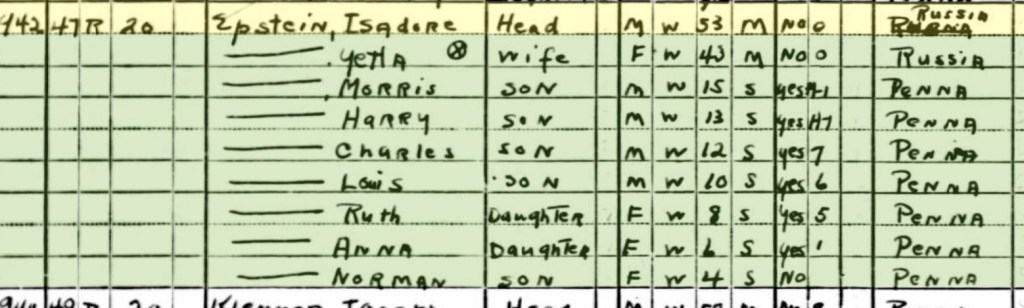 442 47 R 20 Epstein, Isadore Head M W 53 M No 0 Russia
Yetta ⊗ wife F W 43 M No 0 Russia
Morris son M W 15 S yes H-1 Penna
Harry son M W 13 S yes H7 Penna
Charles son M W 12 S yes 7 Penna
Louis son M W 10 S yes 6 Penna
Ruth Daughter F W 8 S yes 5 Penna
Anna Daughter F W 6 S yes 1 Penna
Norman son F W 4 S No Penna